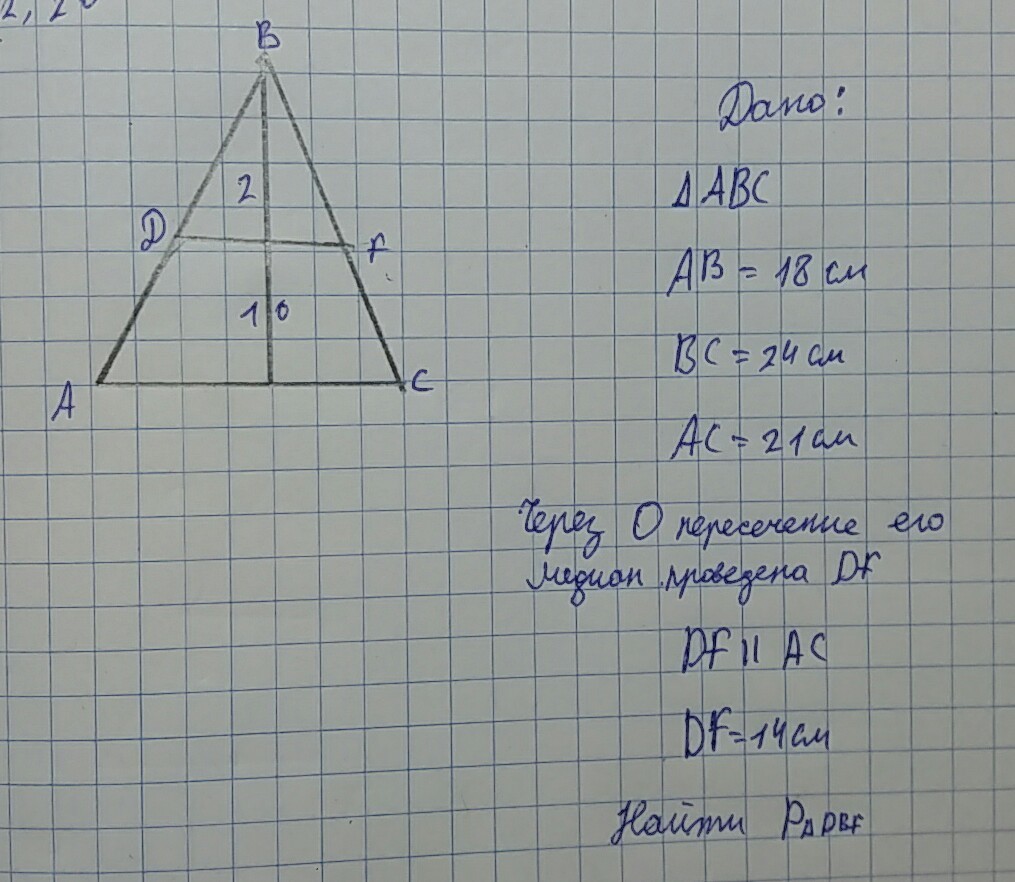 B
2
D
F
1 0
A
C
Дано:
Δ ABC
AB = 18 см
BC = 24 см
AC = 21 см
Через O пересечение его
медиан проведена DF
DF || AC
DF = 14 см
Найти P△DBF